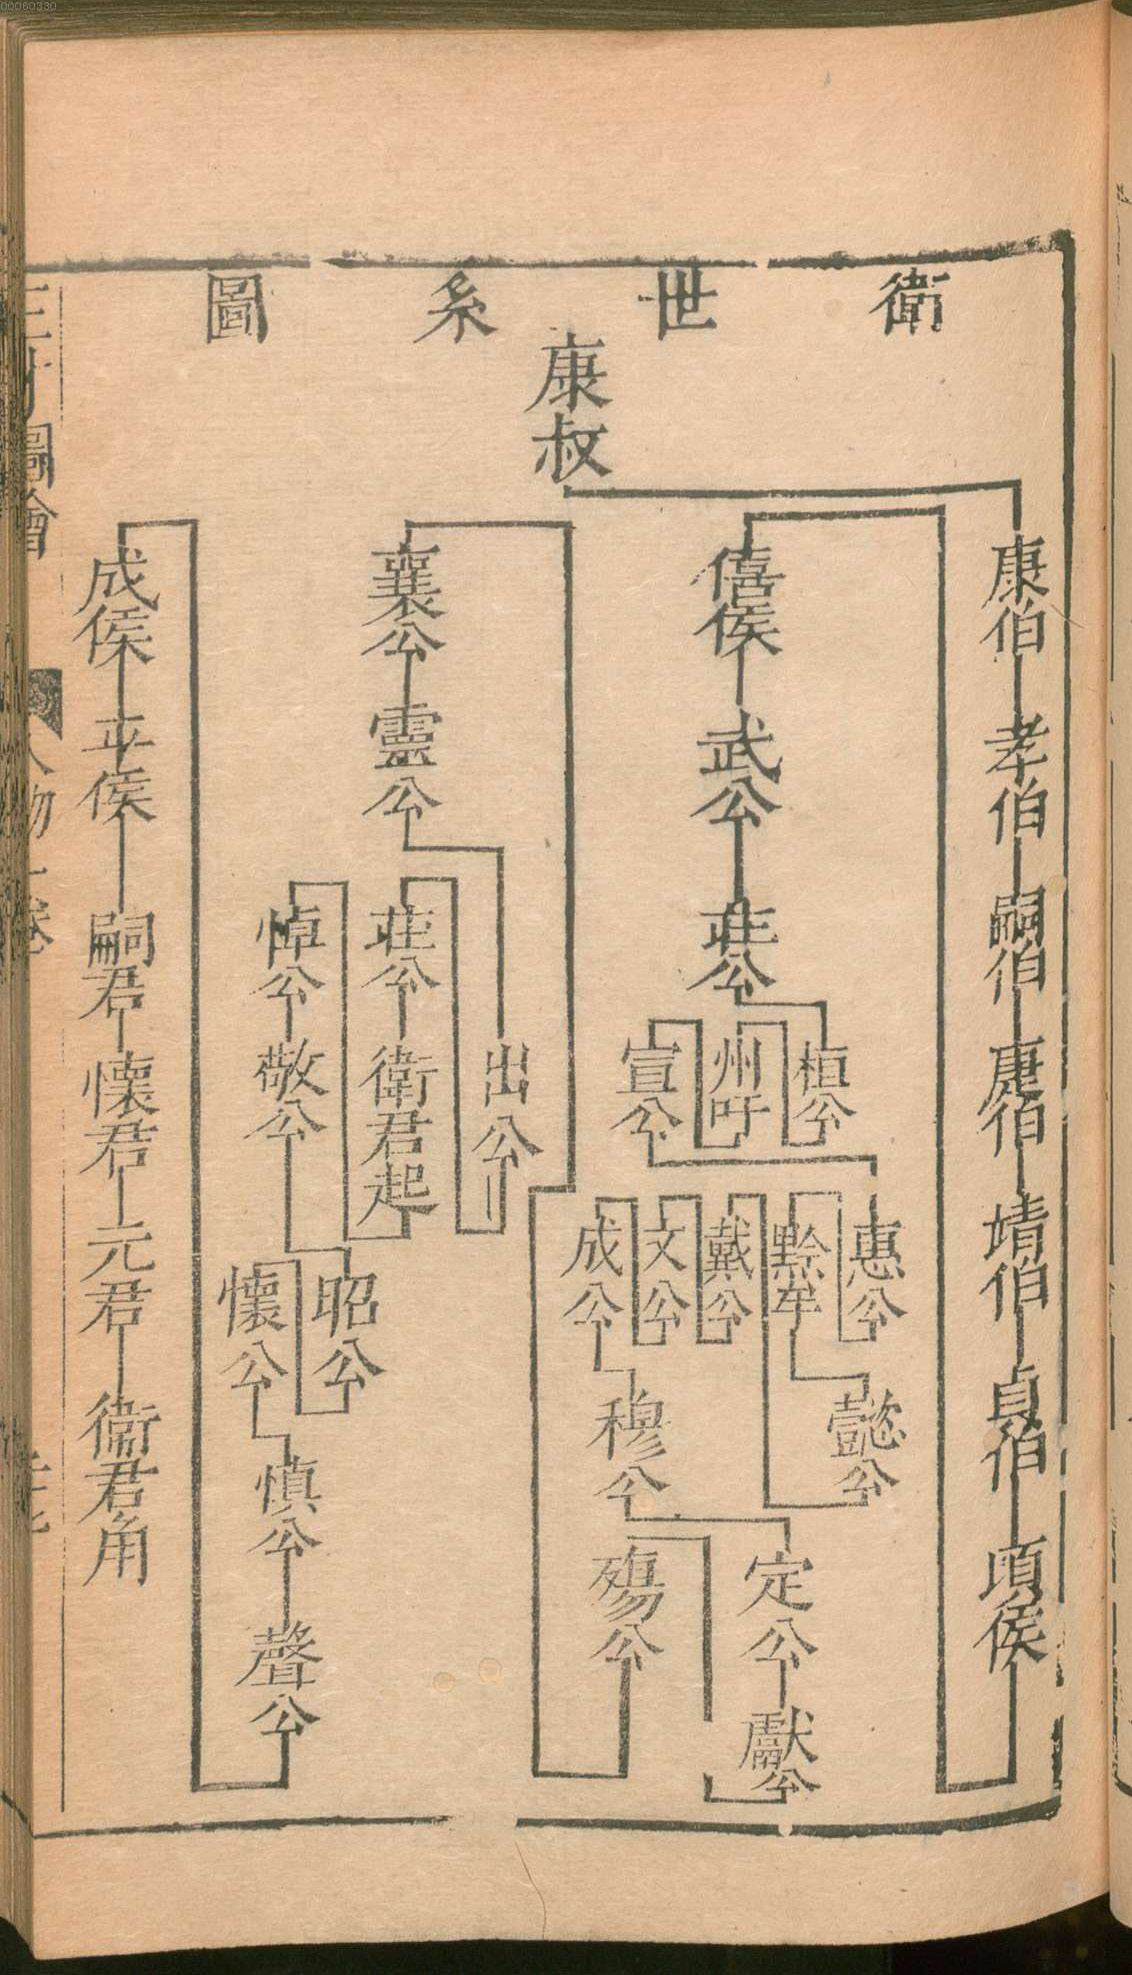 衛世系圖
康叔
康伯
孝伯
嗣伯
康伯
靖伯
貞伯
頃侯
僖侯
武公
莊公
桓公
州吁
宣公
惠公
黔牟
戴公
文公
成公
懿公
穆公
定公
獻公
殤公
襄公
靈公
出公
莊公
衛君起
悼公
敬公
昭公
懷公
慎公
聲公
成侯
平侯
嗣君
懷君
元君
衛君角
圖會
00060330